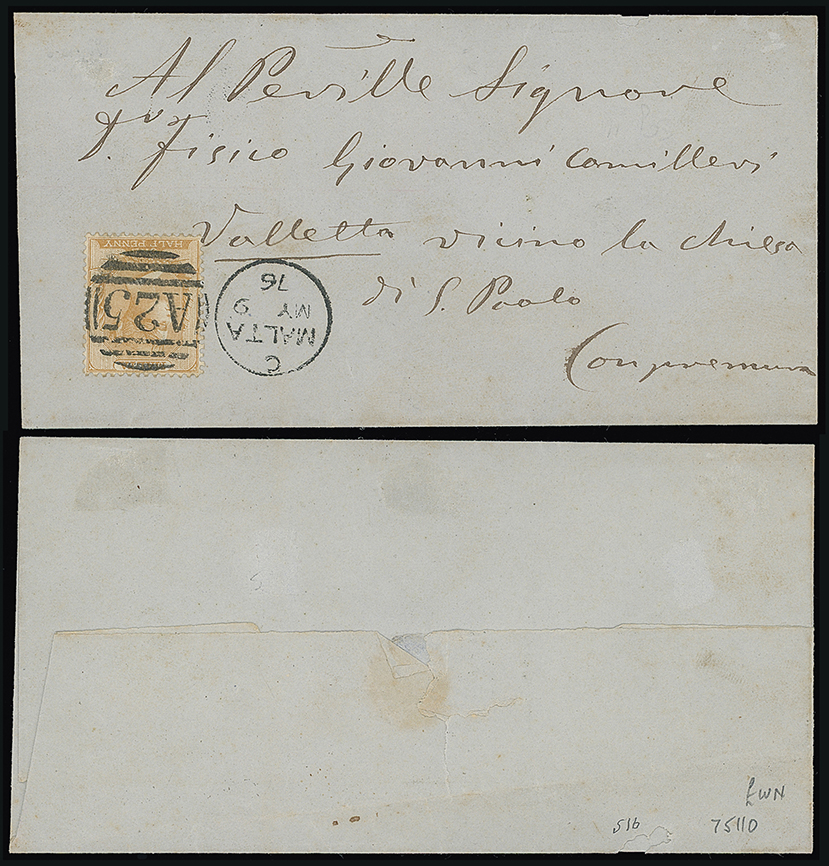 Al Perille Signore
Dr. Fisico Giovanni Camilleri
Valletta vicino la chiesa
di S. Paolo
Con premura
HALF PENNY
A25
C
MALTA
MY 9
76
£WN
516 75110